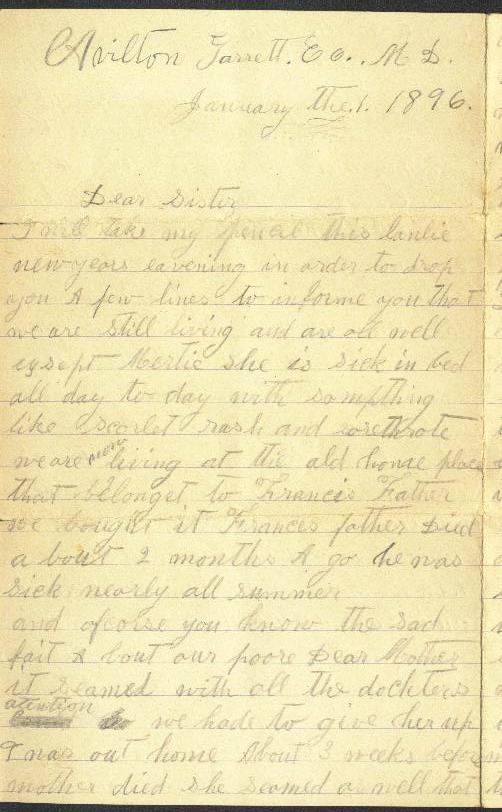 Avilton Garrett. Co. M D.
January the.1. 1896.
Dear Sister
I will take my pencil this lonlie
newyears eavening in order to drop
you A few lines to informe you that
we are still living and are all well
exsept Mertie she is sick in bed
all day to day with sompthing
like scorlet rash and sorethrote
we are now living at the old home place
that belonget to Francis Father
we bought it Frances father Died
a bout 2 months A go he was
sick nearly all summer
and ofcorse you know the sad
fait A bout our poore Dear Mother
it seamed with all the dockters
atention we hade to give her up
I was out home About 3 weeks before
mother died she seamed as well that